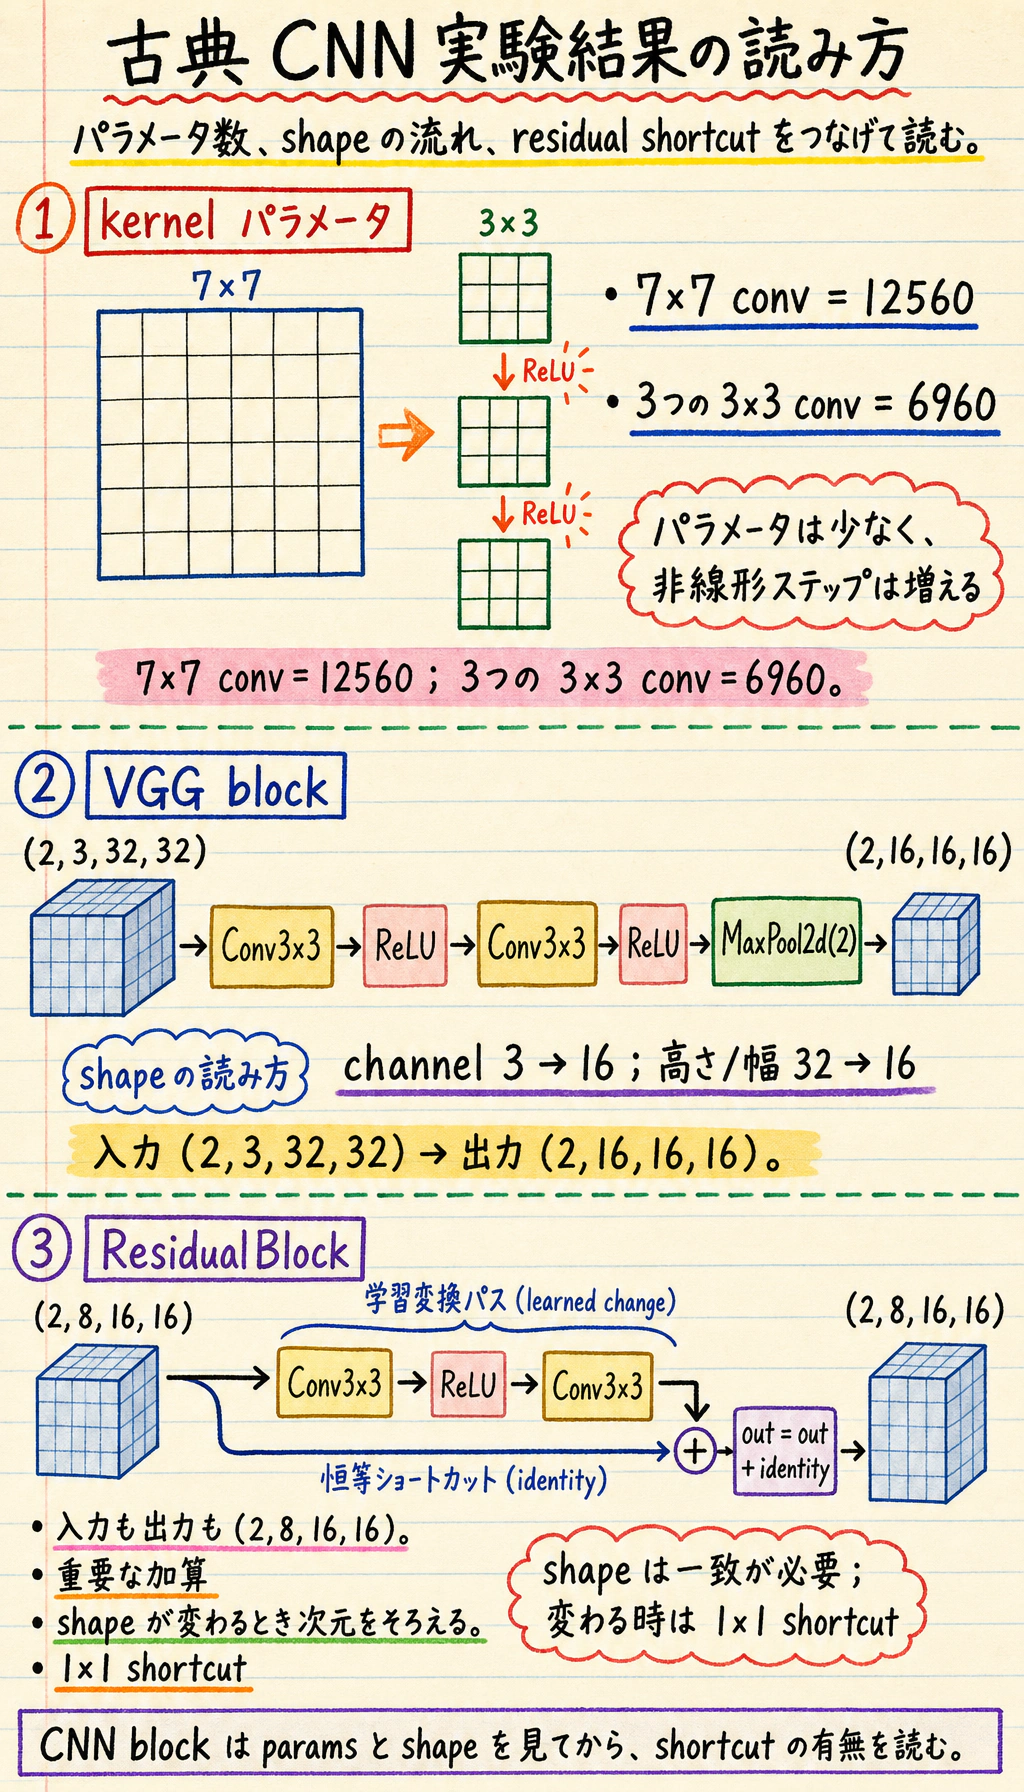 古典 CNN 実験結果の読み方
パラメータ数、shape の流れ、residual shortcut をつなげて読む。
① kernel パラメータ
7×7
3×3
ReLU
ReLU
• 7×7 conv = 12560
• 3つの 3×3 conv = 6960
パラメータは少なく、
非線形ステップは増える
7×7 conv = 12560 ; 3つの 3×3 conv = 6960。
② VGG block
(2, 3, 32, 32)
(2, 16, 16, 16)
Conv3×3
ReLU
Conv3×3
ReLU
MaxPool2d(2)
shape の読み方
channel 3 → 16 ; 高さ/幅 32 → 16
入力 (2, 3, 32, 32) → 出力 (2, 16, 16, 16)。
③ ResidualBlock
学習変換パス (learned change)
(2, 8, 16, 16)
(2, 8, 16, 16)
Conv3×3
ReLU
Conv3×3
+
out = out
+ identity
恒等ショートカット (identity)
• 入力も出力も (2, 8, 16, 16)。
• 重要な加算
• shape が変わるとき次元をそろえる。
• 1×1 shortcut
shape は一致が必要 ;
変わる時は 1×1 shortcut
CNN block は params と shape を見てから、shortcut の有無を読む。